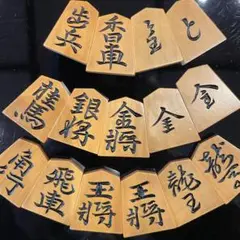 歩兵 香車 と
桂馬 銀将 金将 全 金
角行 飛車 王将 王将 龍王 龍馬